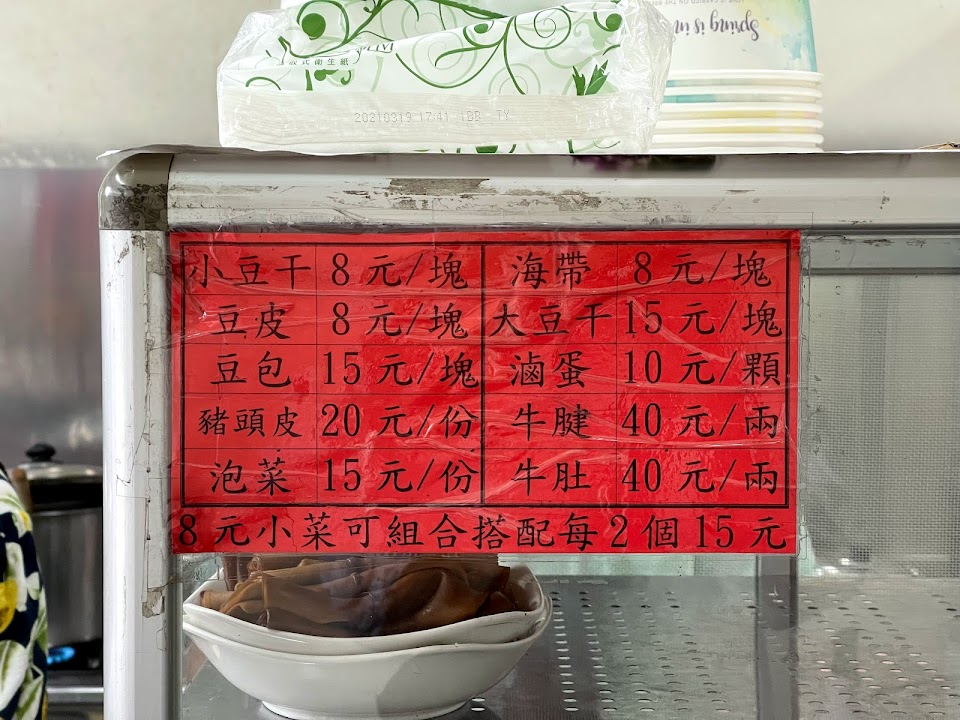 Spring is in
款式衛生紙
20210319 17:41 1BB TY
小豆干 8元/塊 海帶 8元/塊
豆皮 8元/塊 大豆干 15元/塊
豆包 15元/塊 滷蛋 10元/顆
豬頭皮 20元/份 牛腱 40元/兩
泡菜 15元/份 牛肚 40元/兩
8元小菜可組合搭配每2個15元